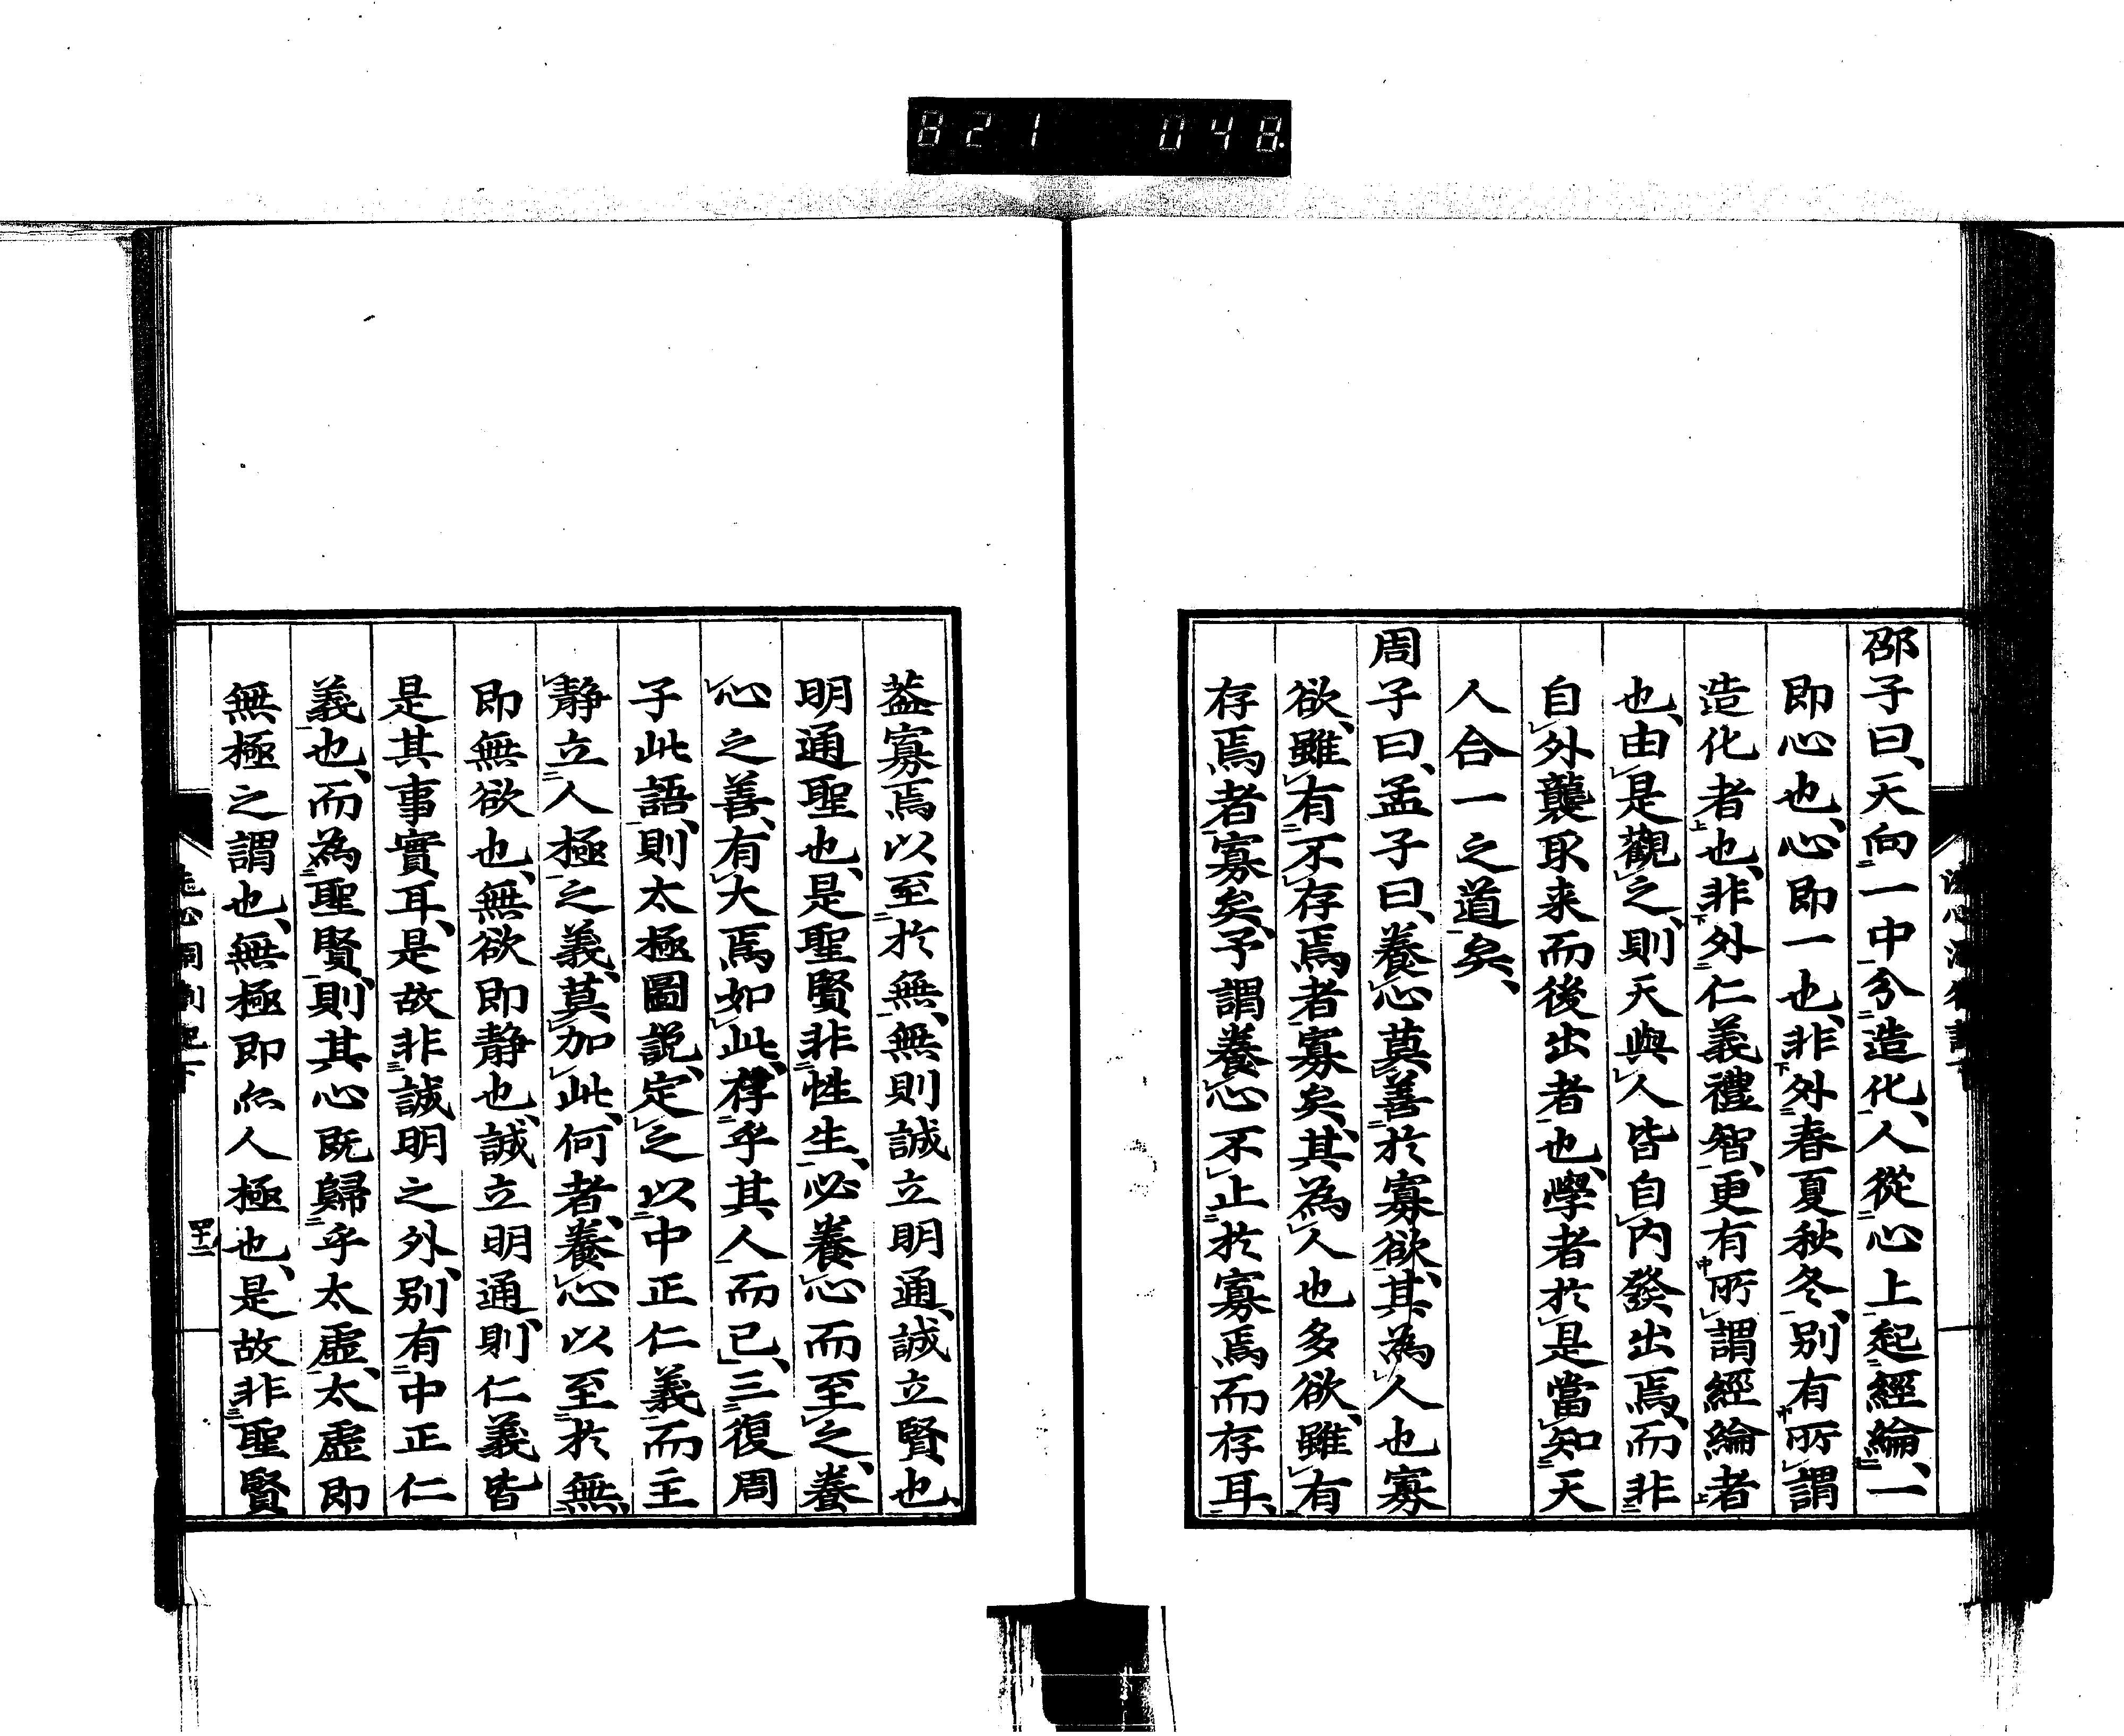 821 048
邵子曰、天向一中分造化、人從心上起經綸、一
即心也、心即一也、非外春夏秋冬、別有所謂
造化者也、非外仁義禮智、更有所謂經綸者
也、由是觀之、則天與人皆自內發出焉、而非
自外襲取来而後出者也、學者於是當知天
人合一之道矣、
周子曰、孟子曰、養心莫善於寡欲、其為人也寡
欲、雖有不存焉者寡矣、其為人也多欲、雖有
存焉者寡矣、予謂養心不止於寡焉而存耳、
葢寡焉以至於無、無則誠立明通、誠立賢也、
明通聖也、是聖賢非性生、必養心而至之、養
心之善、有大焉如此、存乎其人而已、三復周
子此語、則太極圖說、定之以中正仁義而主
静立人極之義、莫加此、何者、養心以至於無、
即無欲也、無欲即静也、誠立明通、則仁義皆
是其事實耳、是故非誠明之外、別有中正仁
義也、而為聖賢、則其心既歸乎太虛、太虛即
無極之謂也、無極即尒人極也、是故非聖賢
四十二